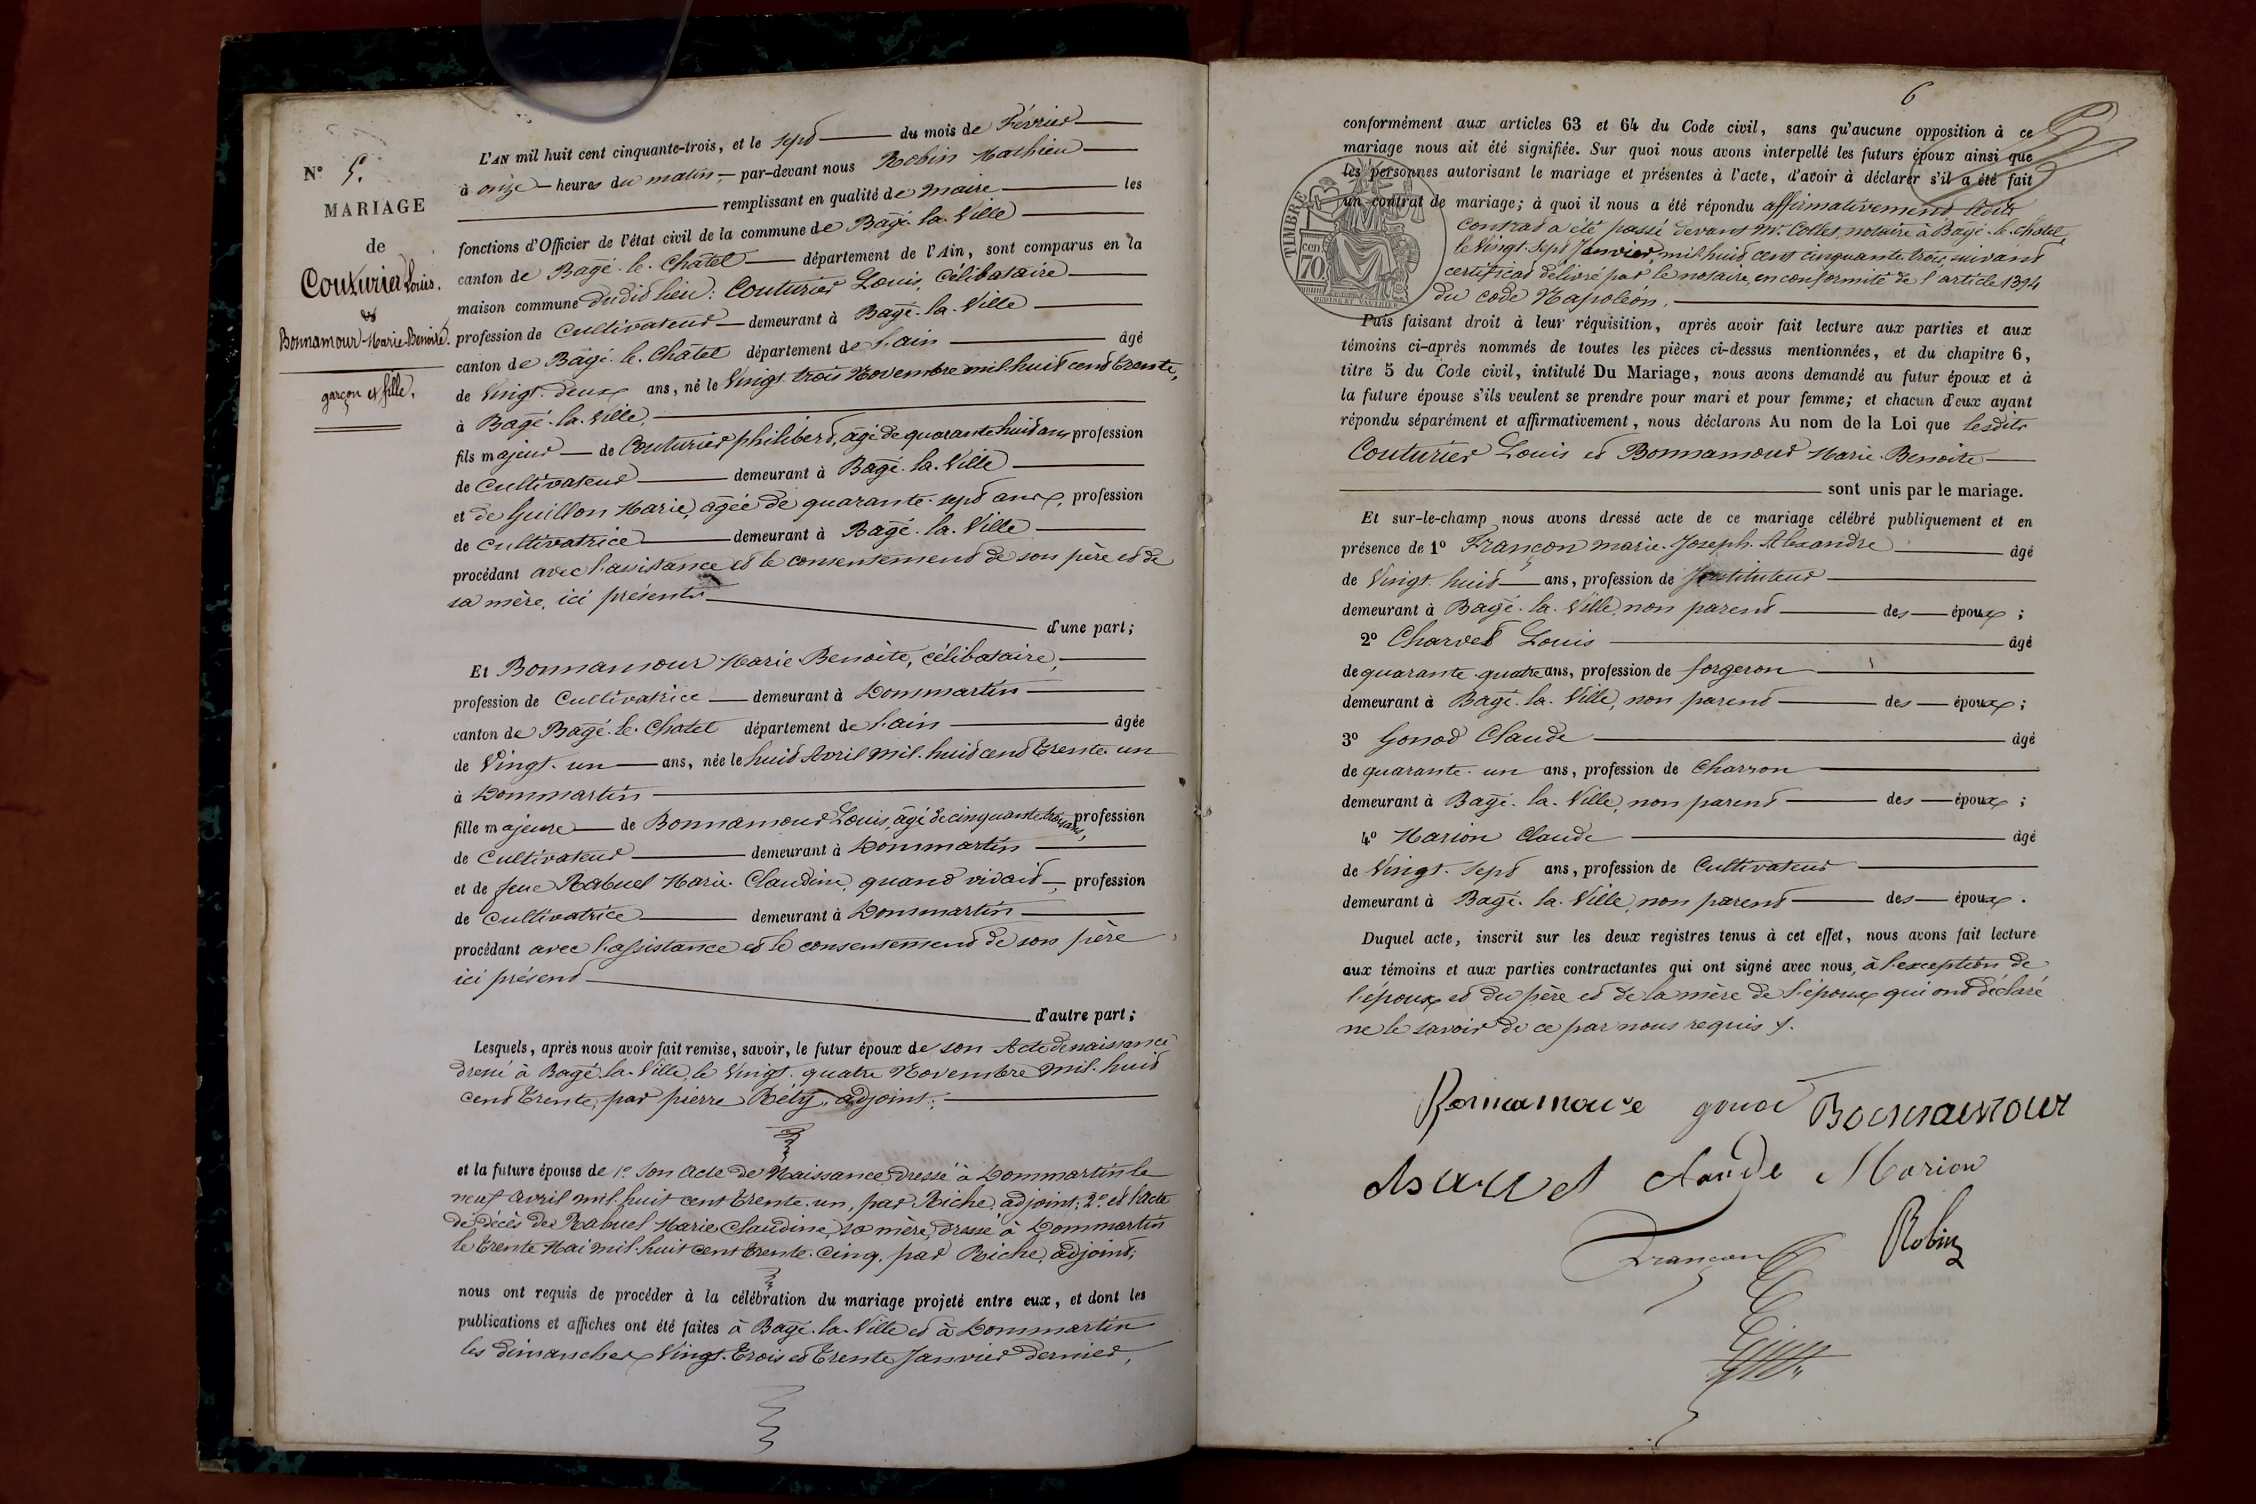 N° 5.
MARIAGE
de
Couturier Louis.
et
Bonnamour Marie Benoite.
garçon et fille.
L'AN mil huit cent cinquante-trois, et le sept du mois de Février
à onze heures du matin, par-devant nous Robin Mathieu
remplissant en qualité de Maire les
fonctions d'Officier de l'état civil de la commune de Bagé-la-Ville
canton de Bagé-le-Châtel département de l'Ain, sont comparus en la
maison commune dudit lieu: Couturier Louis, célibataire
profession de Cultivateur demeurant à Bagé-la-Ville
canton de Bagé-le-Châtel département de l'ain âgé
de Vingt-deux ans, né le Vingt trois Novembre mil huit cent trente,
à Bagé-la-Ville,
fils majeur de Couturier philibert, âgé de quarante huit ans, profession
de Cultivateur demeurant à Bagé-la-Ville
et de Guillon Marie, âgée de quarante-sept ans, profession
de Cultivatrice demeurant à Bagé-la-Ville
procédant avec l'assistance et le consentement de son père et de
sa mère, ici présents
d'une part;
Et Bonnamour Marie Benoite, célibataire,
profession de Cultivatrice demeurant à Dommartin
canton de Bagé-le-Chatel département de l'ain âgée
de Vingt-un ans, née le huit Avril mil-huit cent trente-un
à Dommartin
fille majeure de Bonnamour Louis, âgé de cinquante trois ans, profession
de Cultivateur demeurant à Dommartin
et de feue Rabuel Marie Claudine, quand vivait, profession
de Cultivatrice demeurant à Dommartin
procédant avec l'assistance et le consentement de son père
ici présent
d'autre part;
Lesquels, après nous avoir fait remise, savoir, le futur époux de son Acte de naissance
dressé à Bagé-la-Ville, le Vingt-quatre Novembre mil-huit
cent trente, par pierre Réty, adjoint;
et la future épouse de 1° Son Acte de Naissance dressé à Dommartin le
neuf avril mil-huit cent trente-un, par Riche, adjoint; 2° et l'Acte
de décès de Rabuel Marie Claudine, sa mère, dressé à Dommartin
le trente Mai mil-huit cent trente-cinq, par Riche, adjoint;
nous ont requis de procéder à la célébration du mariage projeté entre eux, et dont les
publications et affiches ont été faites à Bagé-la-Ville et à Dommartin
les dimanches Vingt-trois et trente Janvier dernier,
6
conformément aux articles 63 et 64 du Code civil, sans qu'aucune opposition à ce
mariage nous ait été signifiée. Sur quoi nous avons interpellé les futurs époux ainsi que
les personnes autorisant le mariage et présentes à l'acte, d'avoir à déclarer s'il a été fait
un contrat de mariage; à quoi il nous a été répondu affirmativement ledit
contrat a été passé devant Mr. Collet, notaire à Bagé-le-Châtel,
le Vingt-Sept Janvier, mil-huit cent cinquante trois, suivant
certificat délivré par le notaire, en conformité de l'article 1394
du code Napoléon.
TIMBRE
cen
70
Puis faisant droit à leur réquisition, après avoir fait lecture aux parties et aux
témoins ci-après nommés de toutes les pièces ci-dessus mentionnées, et du chapitre 6,
titre 5 du Code civil, intitulé Du Mariage, nous avons demandé au futur époux et à
la future épouse s'ils veulent se prendre pour mari et pour femme; et chacun d'eux ayant
répondu séparément et affirmativement, nous déclarons Au nom de la Loi que lesdits
Couturier Louis et Bonnamour Marie-Benoite
sont unis par le mariage.
Et sur-le-champ nous avons dressé acte de ce mariage célébré publiquement et en
présence de 1° Françon marie-Joseph-Alexandre âgé
de Vingt-huit ans, profession de Instituteur
demeurant à Bagé-la-Ville, non parent des époux;
2° Charvet Louis âgé
de quarante-quatre ans, profession de forgeron
demeurant à Bagé-la-Ville, non parent des époux;
3° Gonod Claude âgé
de quarante-un ans, profession de Charron
demeurant à Bagé-la-Ville, non parent des époux;
4° Marion Claude âgé
de Vingt-Sept ans, profession de Cultivateur
demeurant à Bagé-la-Ville, non parent des époux.
Duquel acte, inscrit sur les deux registres tenus à cet effet, nous avons fait lecture
aux témoins et aux parties contractantes qui ont signé avec nous, à l'exception de
l'époux et du père et de la mère de l'époux qui ont déclaré
ne le savoir de ce par nous requis.
Bonnamoure gonod Bonnamour
charvet claude Marion
Françon Robin